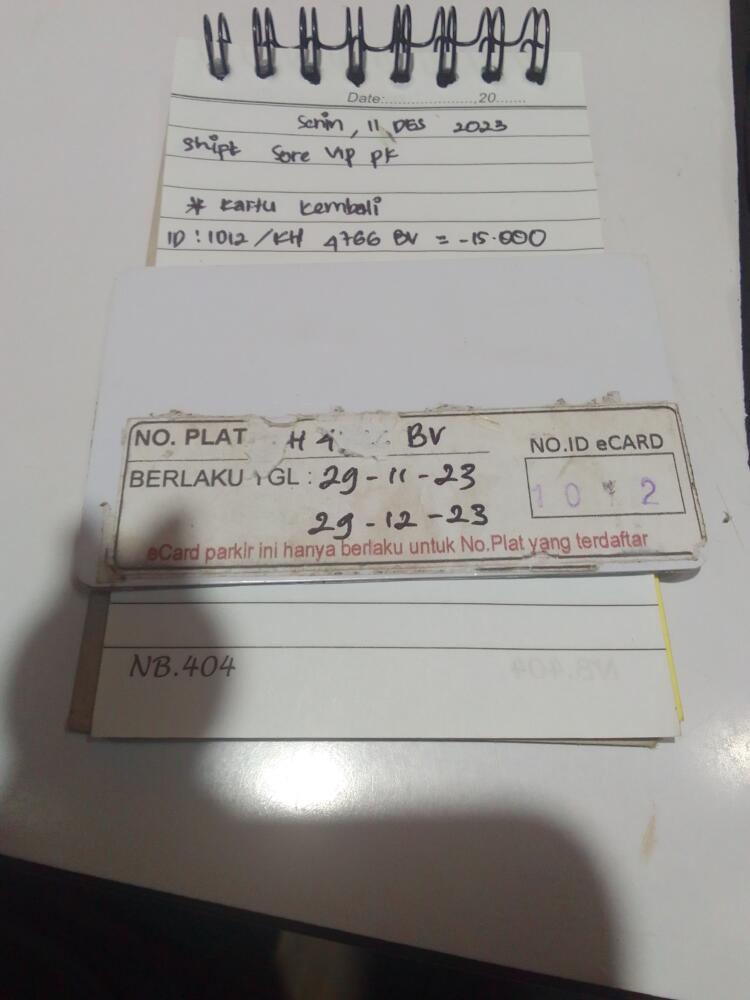 Date:....................,20.......
Senin, 11 DES 2023
Shipt Sore VIP PK
* Kartu Kembali
ID : 1012 / KH 4766 BV = -15.000
NO. PLAT H 4 BV
NO.ID eCARD
BERLAKU TGL : 29-11-23
10 2
29-12-23
eCard parkir ini hanya berlaku untuk No.Plat yang terdaftar
NB.404